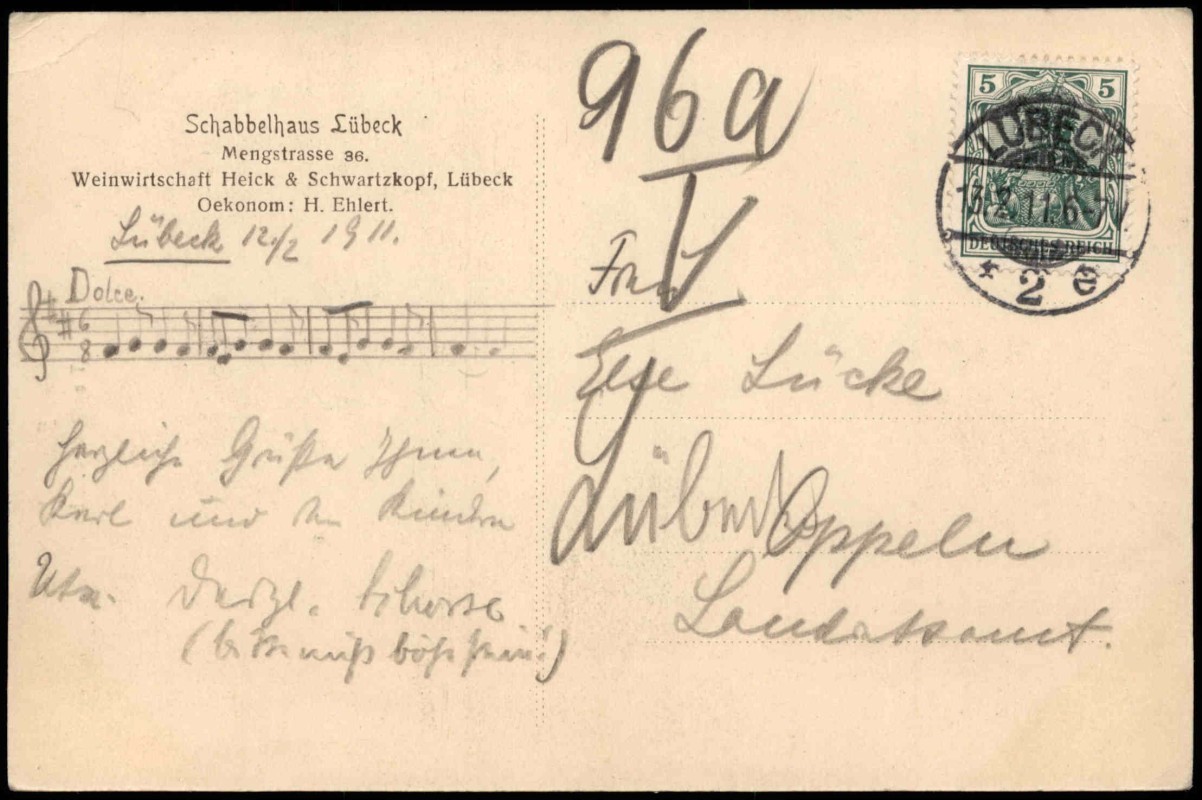 Schabbelhaus Lübeck
Mengstrasse 36.
Weinwirtschaft Heick & Schwartzkopf, Lübeck
Oekonom: H. Ehlert.
Lübeck 12./2 1911.
Dolce.
6
8
Herzliche Grüße Ihnen,
Karl und den Kindern
96a
V
Frau
Else Lücke
Lübeck
Oppeln
Landratsamt.
5 5
DEUTSCHES REICH
LÜBECK
13.2.11.6-7
* 2 e